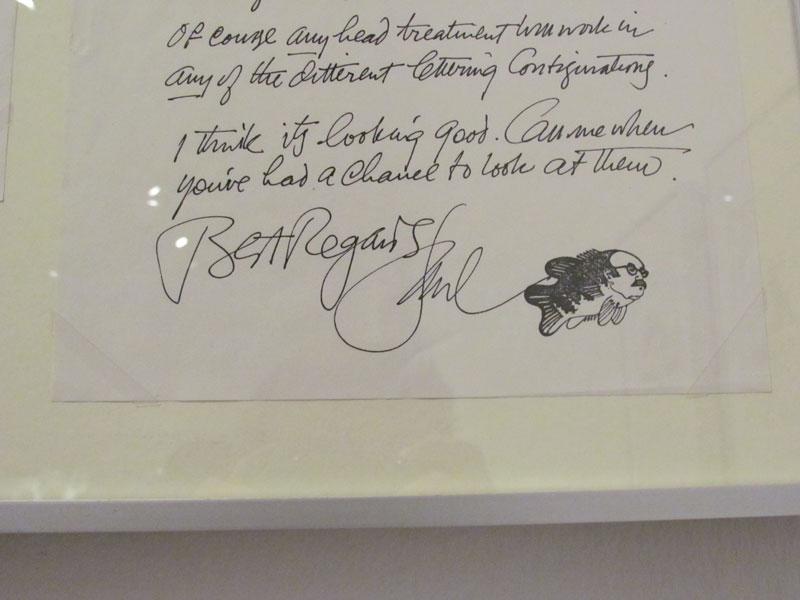 Of course any head treatment will work in
any of the different lettering configurations.
I think its looking good. Call me when
you've had a chance to look at them.
Best Regards Saul